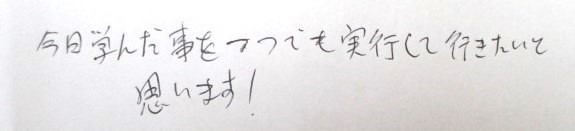 今日学んだ事を1つでも実行して行きたいと
思います!